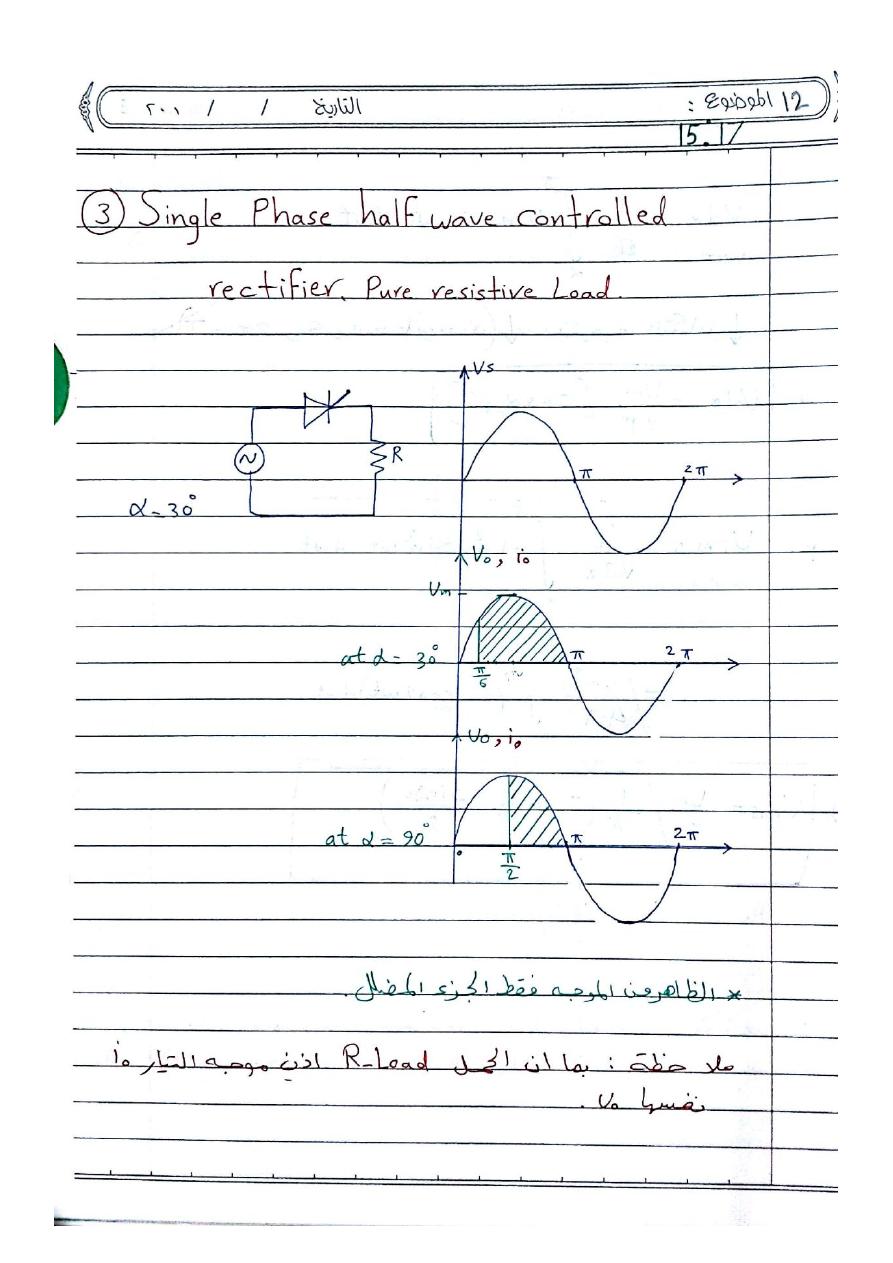 12 الموضوع :
التاريخ / / ٢٠٠١
15.17
③ Single Phase half wave controlled
rectifier. Pure resistive Load.
Vs
R
π
2π
α = 30°
Vo, io
Vm
at α = 30°
π/6
π
2π
Vo, io
at α = 90°
π/2
π
2π
* الظاهر من الموجه فقط الجزء المضلل.
ملاحظة : بما ان الحمل R-Load اذن موجه التيار io
نفسها Vo.